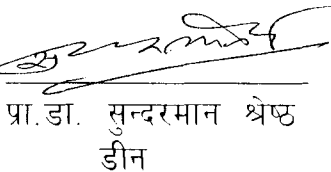 प्रा.डा. सुन्दरमान श्रेष्ठ
डीन